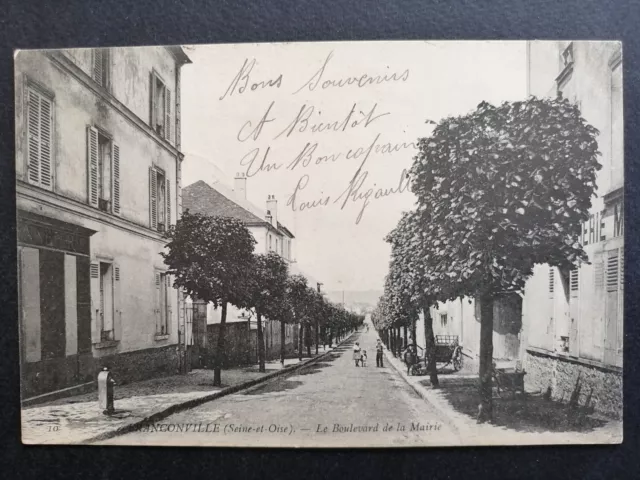 Bons Souvenirs
et Bientôt
Un Bon copain
Louis Rigault
10 FRANCONVILLE (Seine-et-Oise). — Le Boulevard de la Mairie